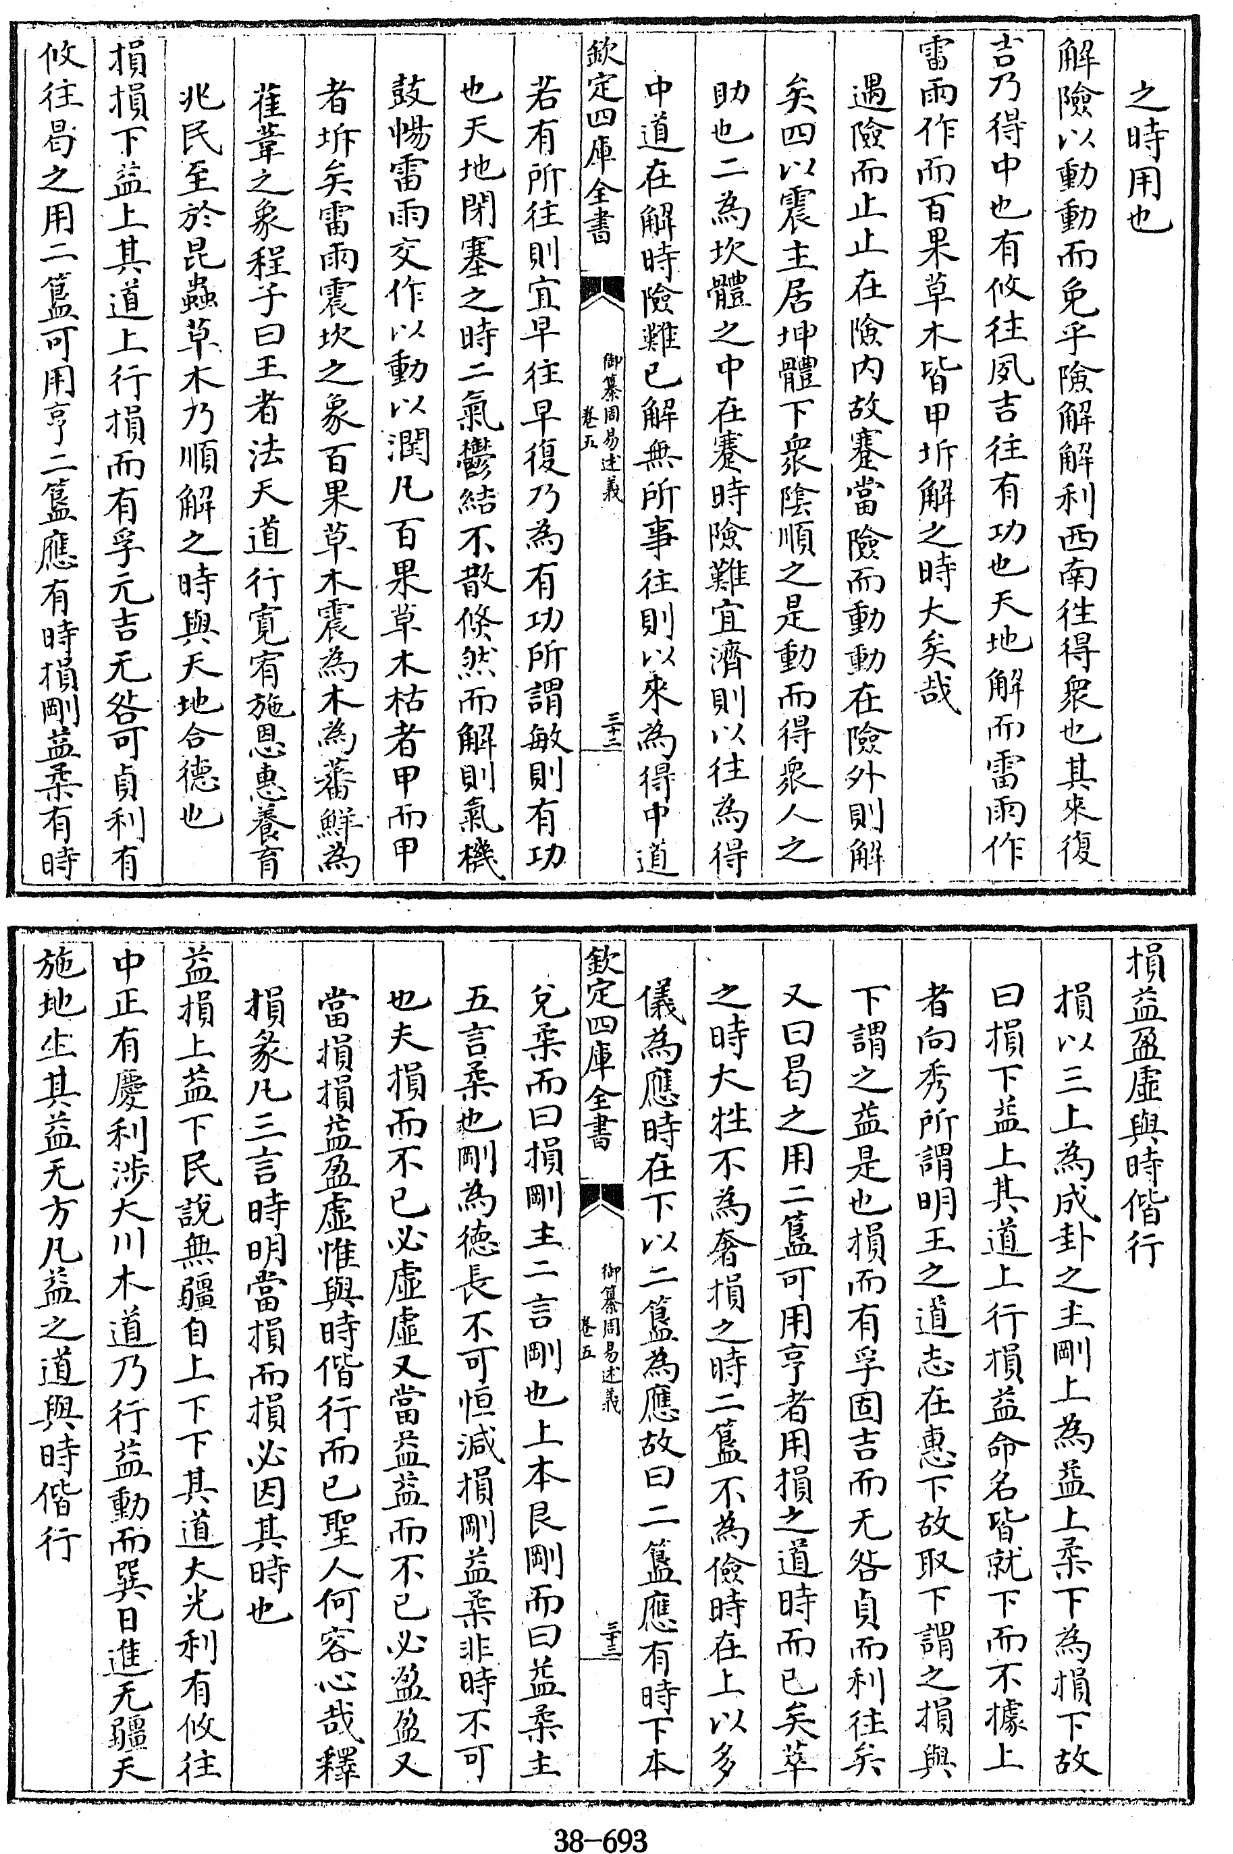 之時用也
解險以動動而免乎險解解利西南徃得衆也其來復
吉乃得中也有攸往夙吉往有功也天地解而雷雨作
雷雨作而百果草木皆甲坼解之時大矣哉
遇險而止止在險内故蹇當險而動動在險外則解
矣四以震主居坤體下衆陰順之是動而得衆人之
助也二為坎體之中在蹇時險難宜濟則以往為得
中道在解時險難已解無所事往則以來為得中道
欽定四庫全書
御纂周易述義
卷五
三十二
若有所往則宜早往早復乃為有功所謂敏則有功
也天地閉塞之時二氣鬱結不散倏然而解則氣機
鼓暢雷雨交作以動以潤凡百果草木枯者甲而甲
者坼矣雷雨震坎之象百果草木震為木為蕃鮮為
萑葦之象程子曰王者法天道行寬宥施恩惠養育
兆民至於昆蟲草木乃順解之時與天地合德也
損損下益上其道上行損而有孚元吉无咎可貞利有
攸往曷之用二簋可用亨二簋應有時損剛益柔有時
損益盈虛與時偕行
損以三上為成卦之主剛上為益上柔下為損下故
曰損下益上其道上行損益命名皆就下而不據上
者向秀所謂明王之道志在惠下故取下謂之損與
下謂之益是也損而有孚固吉而无咎貞而利往矣
又曰曷之用二簋可用亨者用損之道時而已矣萃
之時大牲不為奢損之時二簋不為儉時在上以多
儀為應時在下以二簋為應故曰二簋應有時下本
欽定四庫全書
御纂周易述義
卷五
三十三
兌柔而曰損剛主二言剛也上本艮剛而曰益柔主
五言柔也剛為德長不可恒減損剛益柔非時不可
也夫損而不已必虛虛又當益益而不已必盈盈又
當損損益盈虛惟與時偕行而已聖人何容心哉釋
損彖凡三言時明當損而損必因其時也
益損上益下民說無疆自上下下其道大光利有攸往
中正有慶利涉大川木道乃行益動而巽日進无疆天
施地生其益无方凡益之道與時偕行
38-693